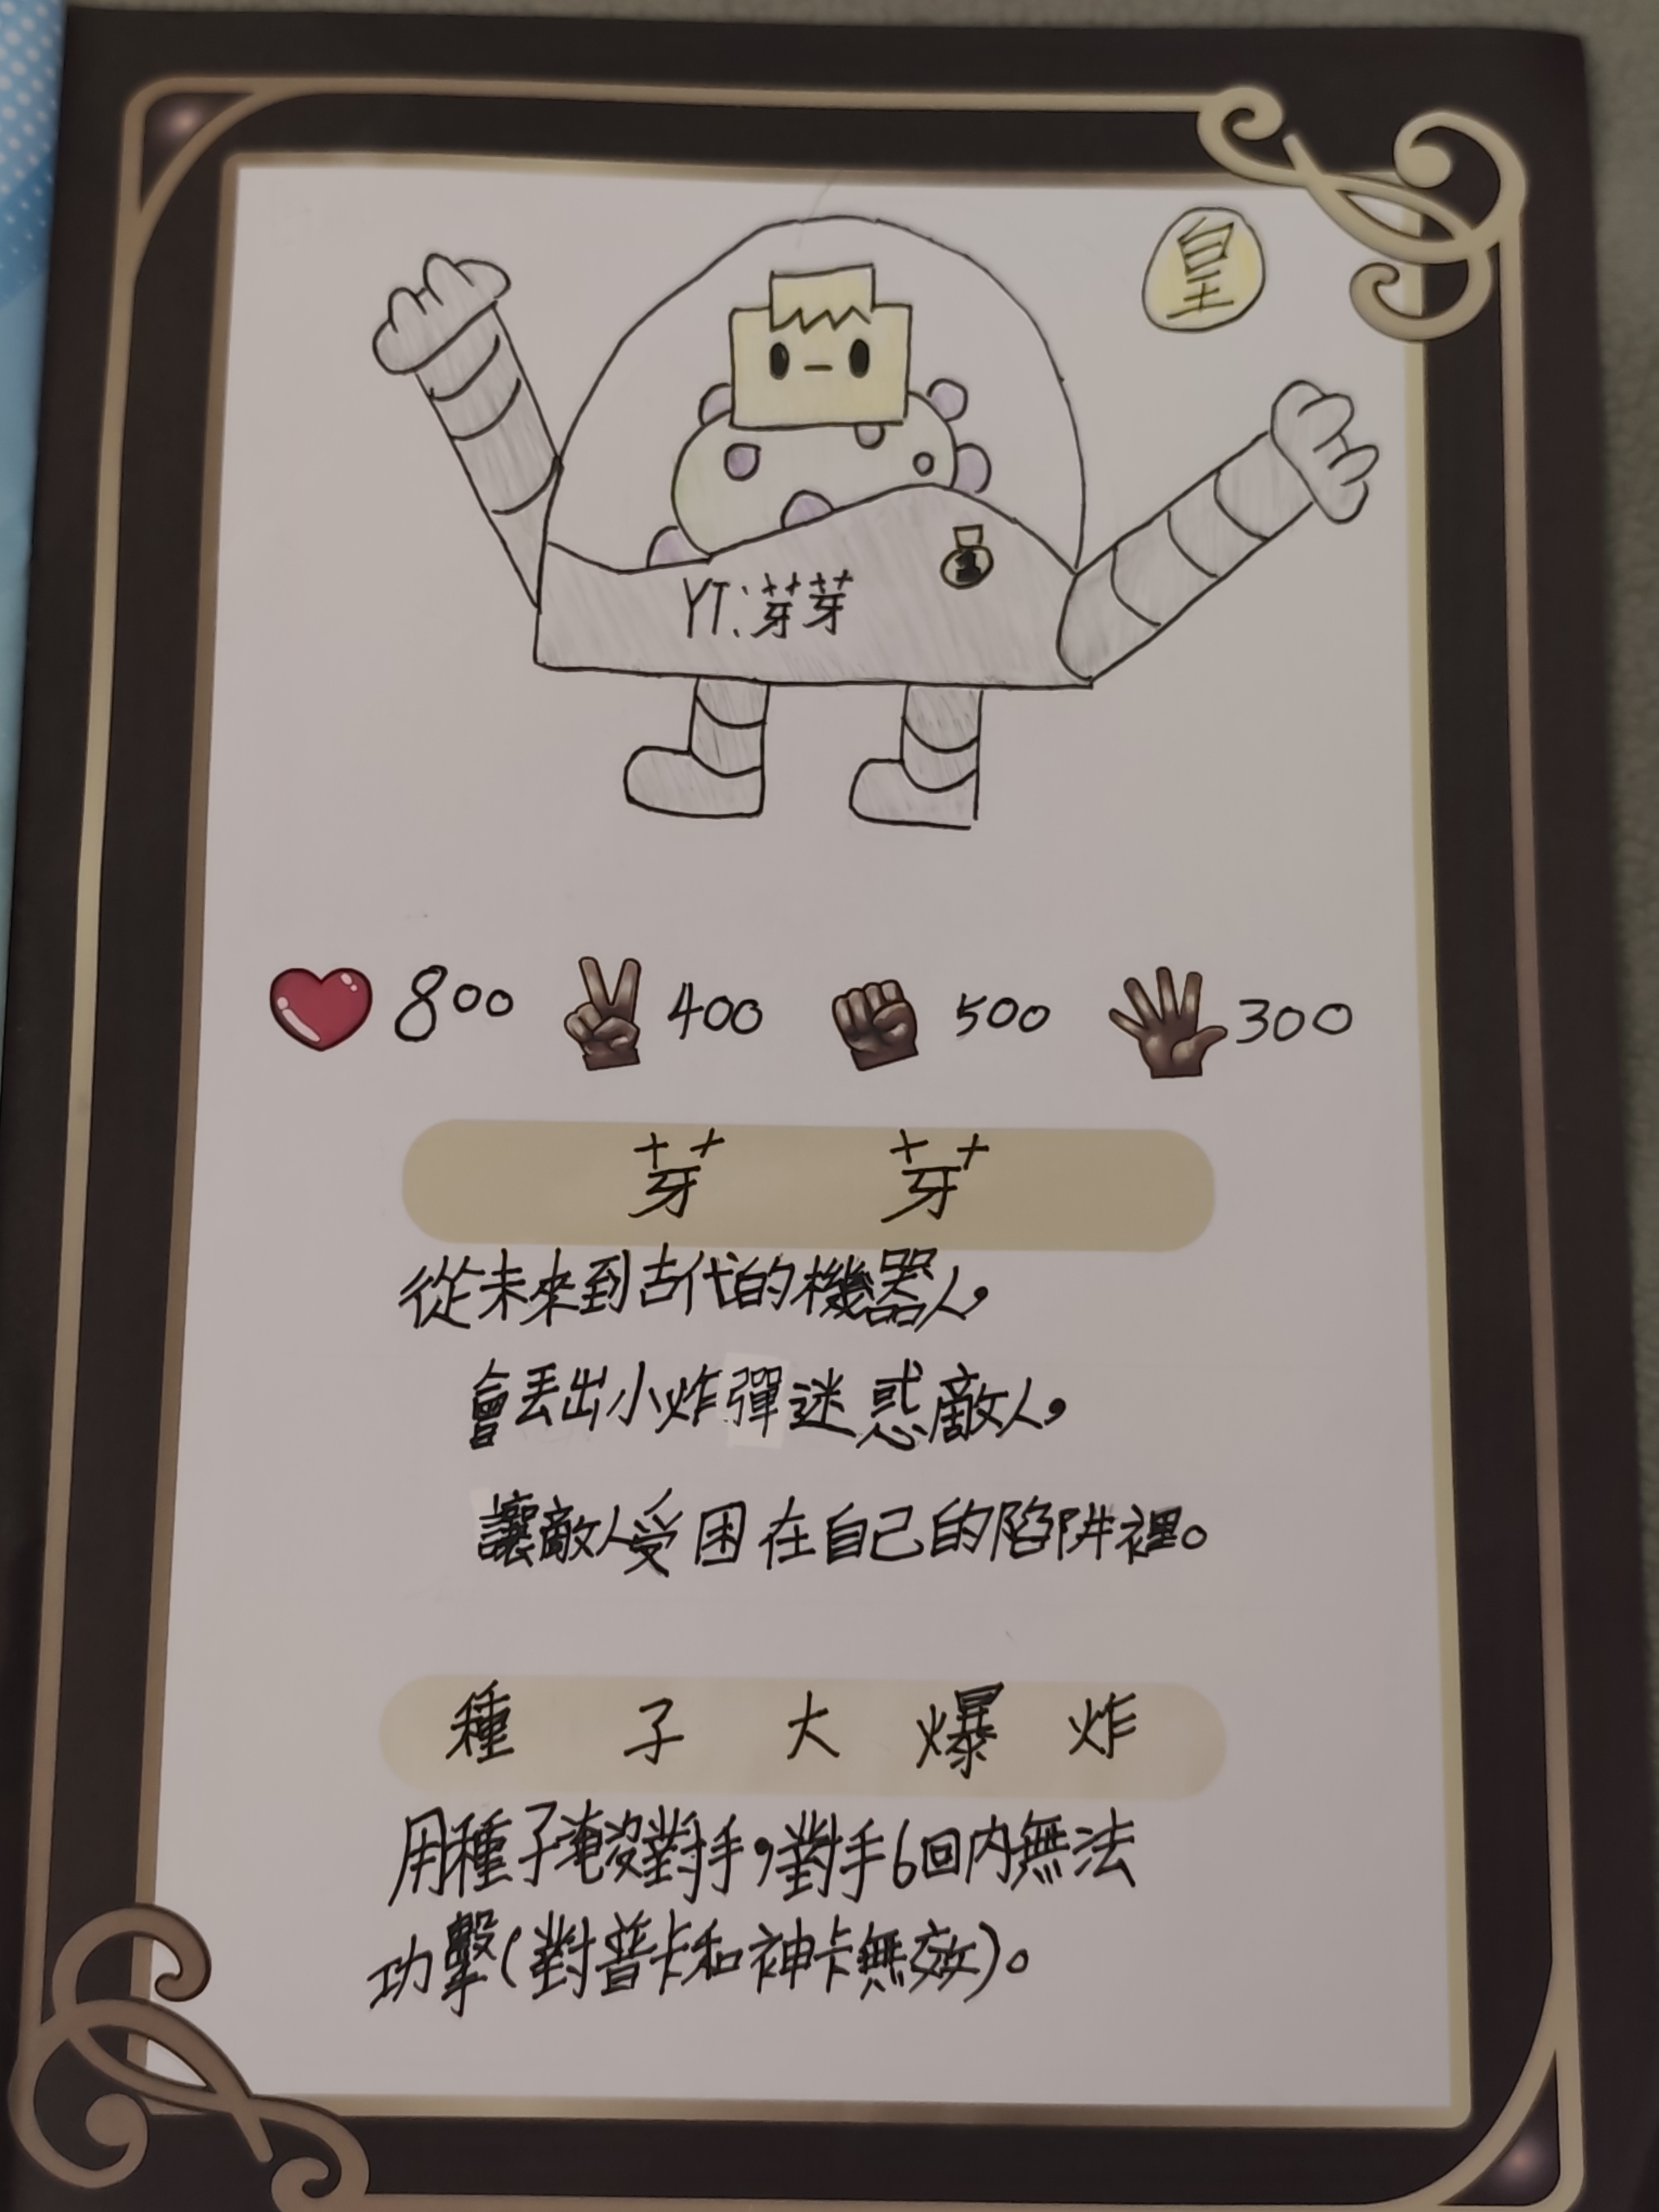 皇
YT:芽芽
1
800 400 500 300
芽芽
從未來到古代的機器人,
會丟出小炸彈迷惑敵人,
讓敵人受困在自己的陷阱裡。
種子大爆炸
用種子淹沒對手,對手6回內無法
功擊(對普卡和神卡無效)。